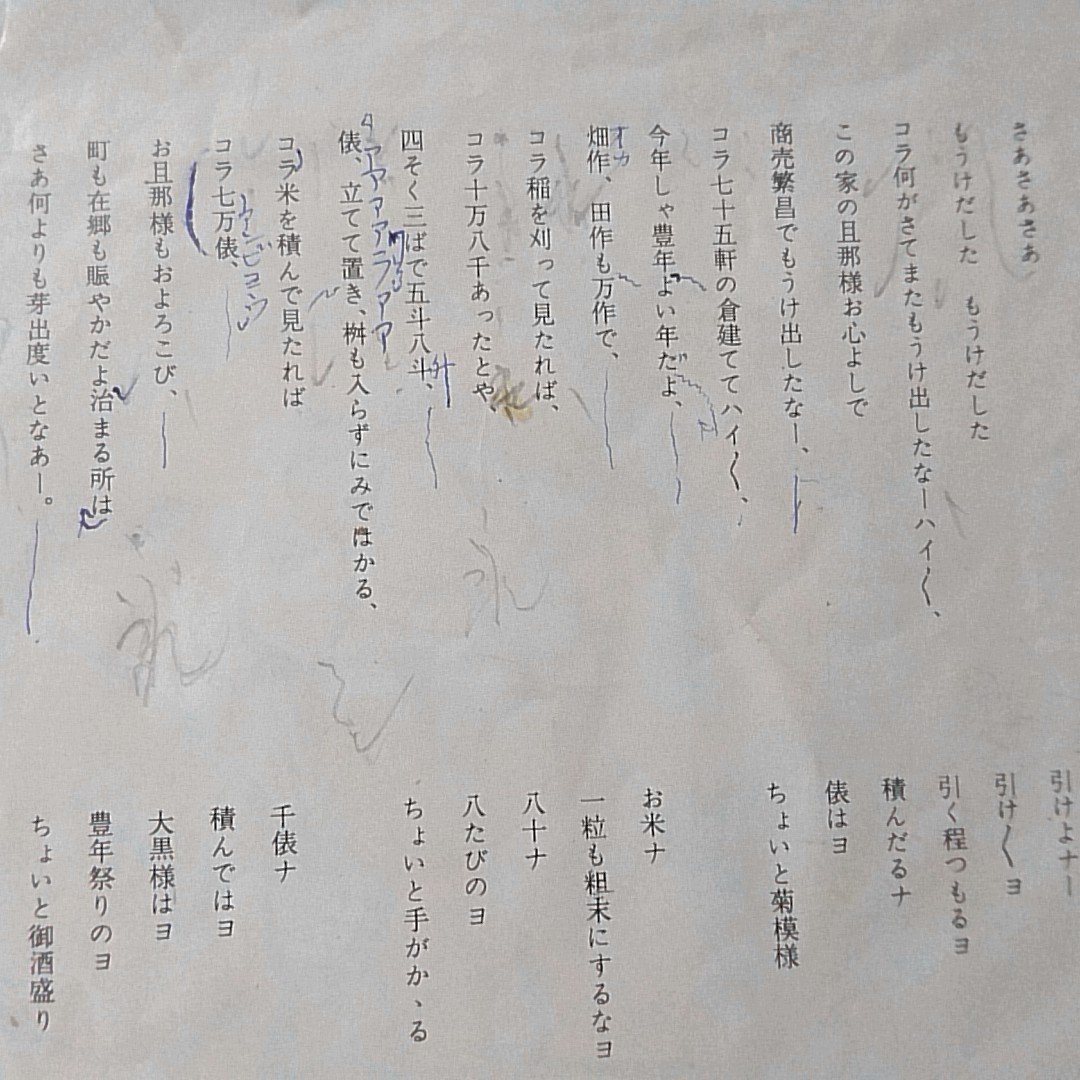 さあさあさあ
もうけだした　もうけだした
コラ何がさてまたもうけ出したなーハイ〱、
この家の旦那様お心よしで
商売繁昌でもうけ出したなー、
コラ七十五軒の倉建ててハイ〱、
今年しゃ豊年よい年だよ、
オカ
畑作、田作も万作で、
コラ稲を刈って見たれば、
コラ十万八千あったとや、
四そく三ばで五斗八斗、
升
俵、立てて置き、桝も入らずにみではかる、
コラ米を積んで見たれば
コラ七万俵、
お旦那様もおよろこび、
町も在郷も賑やかだよ治まる所は
さあ何よりも芽出度いとなあー。
引けよナー
引け〱ヨ
引く程つもるヨ
積んだるナ
俵はヨ
ちょいと菊模様
お米ナ
一粒も粗末にするなヨ
八十ナ
八たびのヨ
ちょいと手がかゝる
千俵ナ
積んではヨ
大黒様はヨ
豊年祭りのヨ
ちょいと御酒盛り